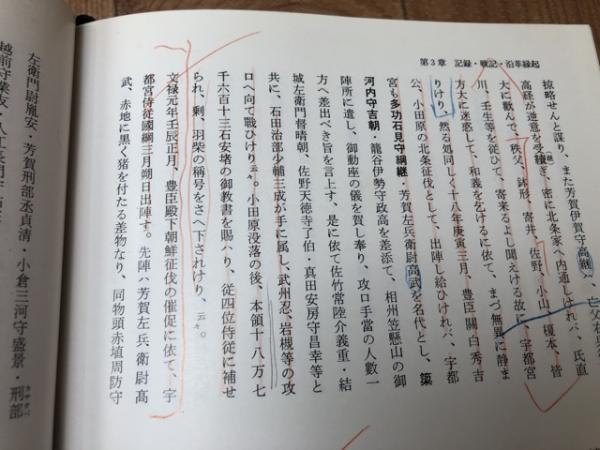 第3章 記録・戦記・沿革縁起
掠略せんと謀り、また芳賀伊賀守高継ハ、亡父右兵
高経が逆意を受續ぎ、密に北条家へ内通しけれバ、氏直
大に歡んで、秩父、鉢形、寄井、佐野、小山、榎本、皆
川、壬生等を従ひて、寄来るよし聞えける故に、宇都宮
方大に迷惑して、和義を乞けるに依て、まづ無異に静ま
りけり、然る処同しく十八年庚寅三月、豊臣關白秀吉
公、小田原の北条征伐として、出陣し給ひけれバ、宇都
宮も多功石見守綱継・芳賀左兵衛尉高武を名代とし、築
河内守吉朝・籠谷伊勢守政高を差添て、相州笠懸山の御
陣所に遣し、御動座の儀を賀し奉り、攻口手當の人数一
方へ差出べき旨を言上す、是に依て佐竹常陸介義重・結
城左衛門督晴朝、佐野天徳寺了伯・真田安房守昌幸等と
共に、石田治部少輔三成が手に属し、武州忍、岩槻等の攻
口へ向て戦ひけり云々。小田原没落の後、本領十八万七
千六百十三石安堵の御教書を賜ハり、従四位侍従に補せ
られ、剰、羽柴の稱号をさへ下されけり、云々。
文禄元年壬辰正月、豊臣殿下朝鮮征伐の催促に依て、宇
都宮侍従國綱三月朔日出陣す。先陣ハ芳賀左兵衛尉高
武、赤地に黒く猪を付たる差物なり、同物頭赤埴周防守
左衛門尉胤安・芳賀刑部丞貞清・小倉三河守盛景・刑部
越前守業友・八江長門守